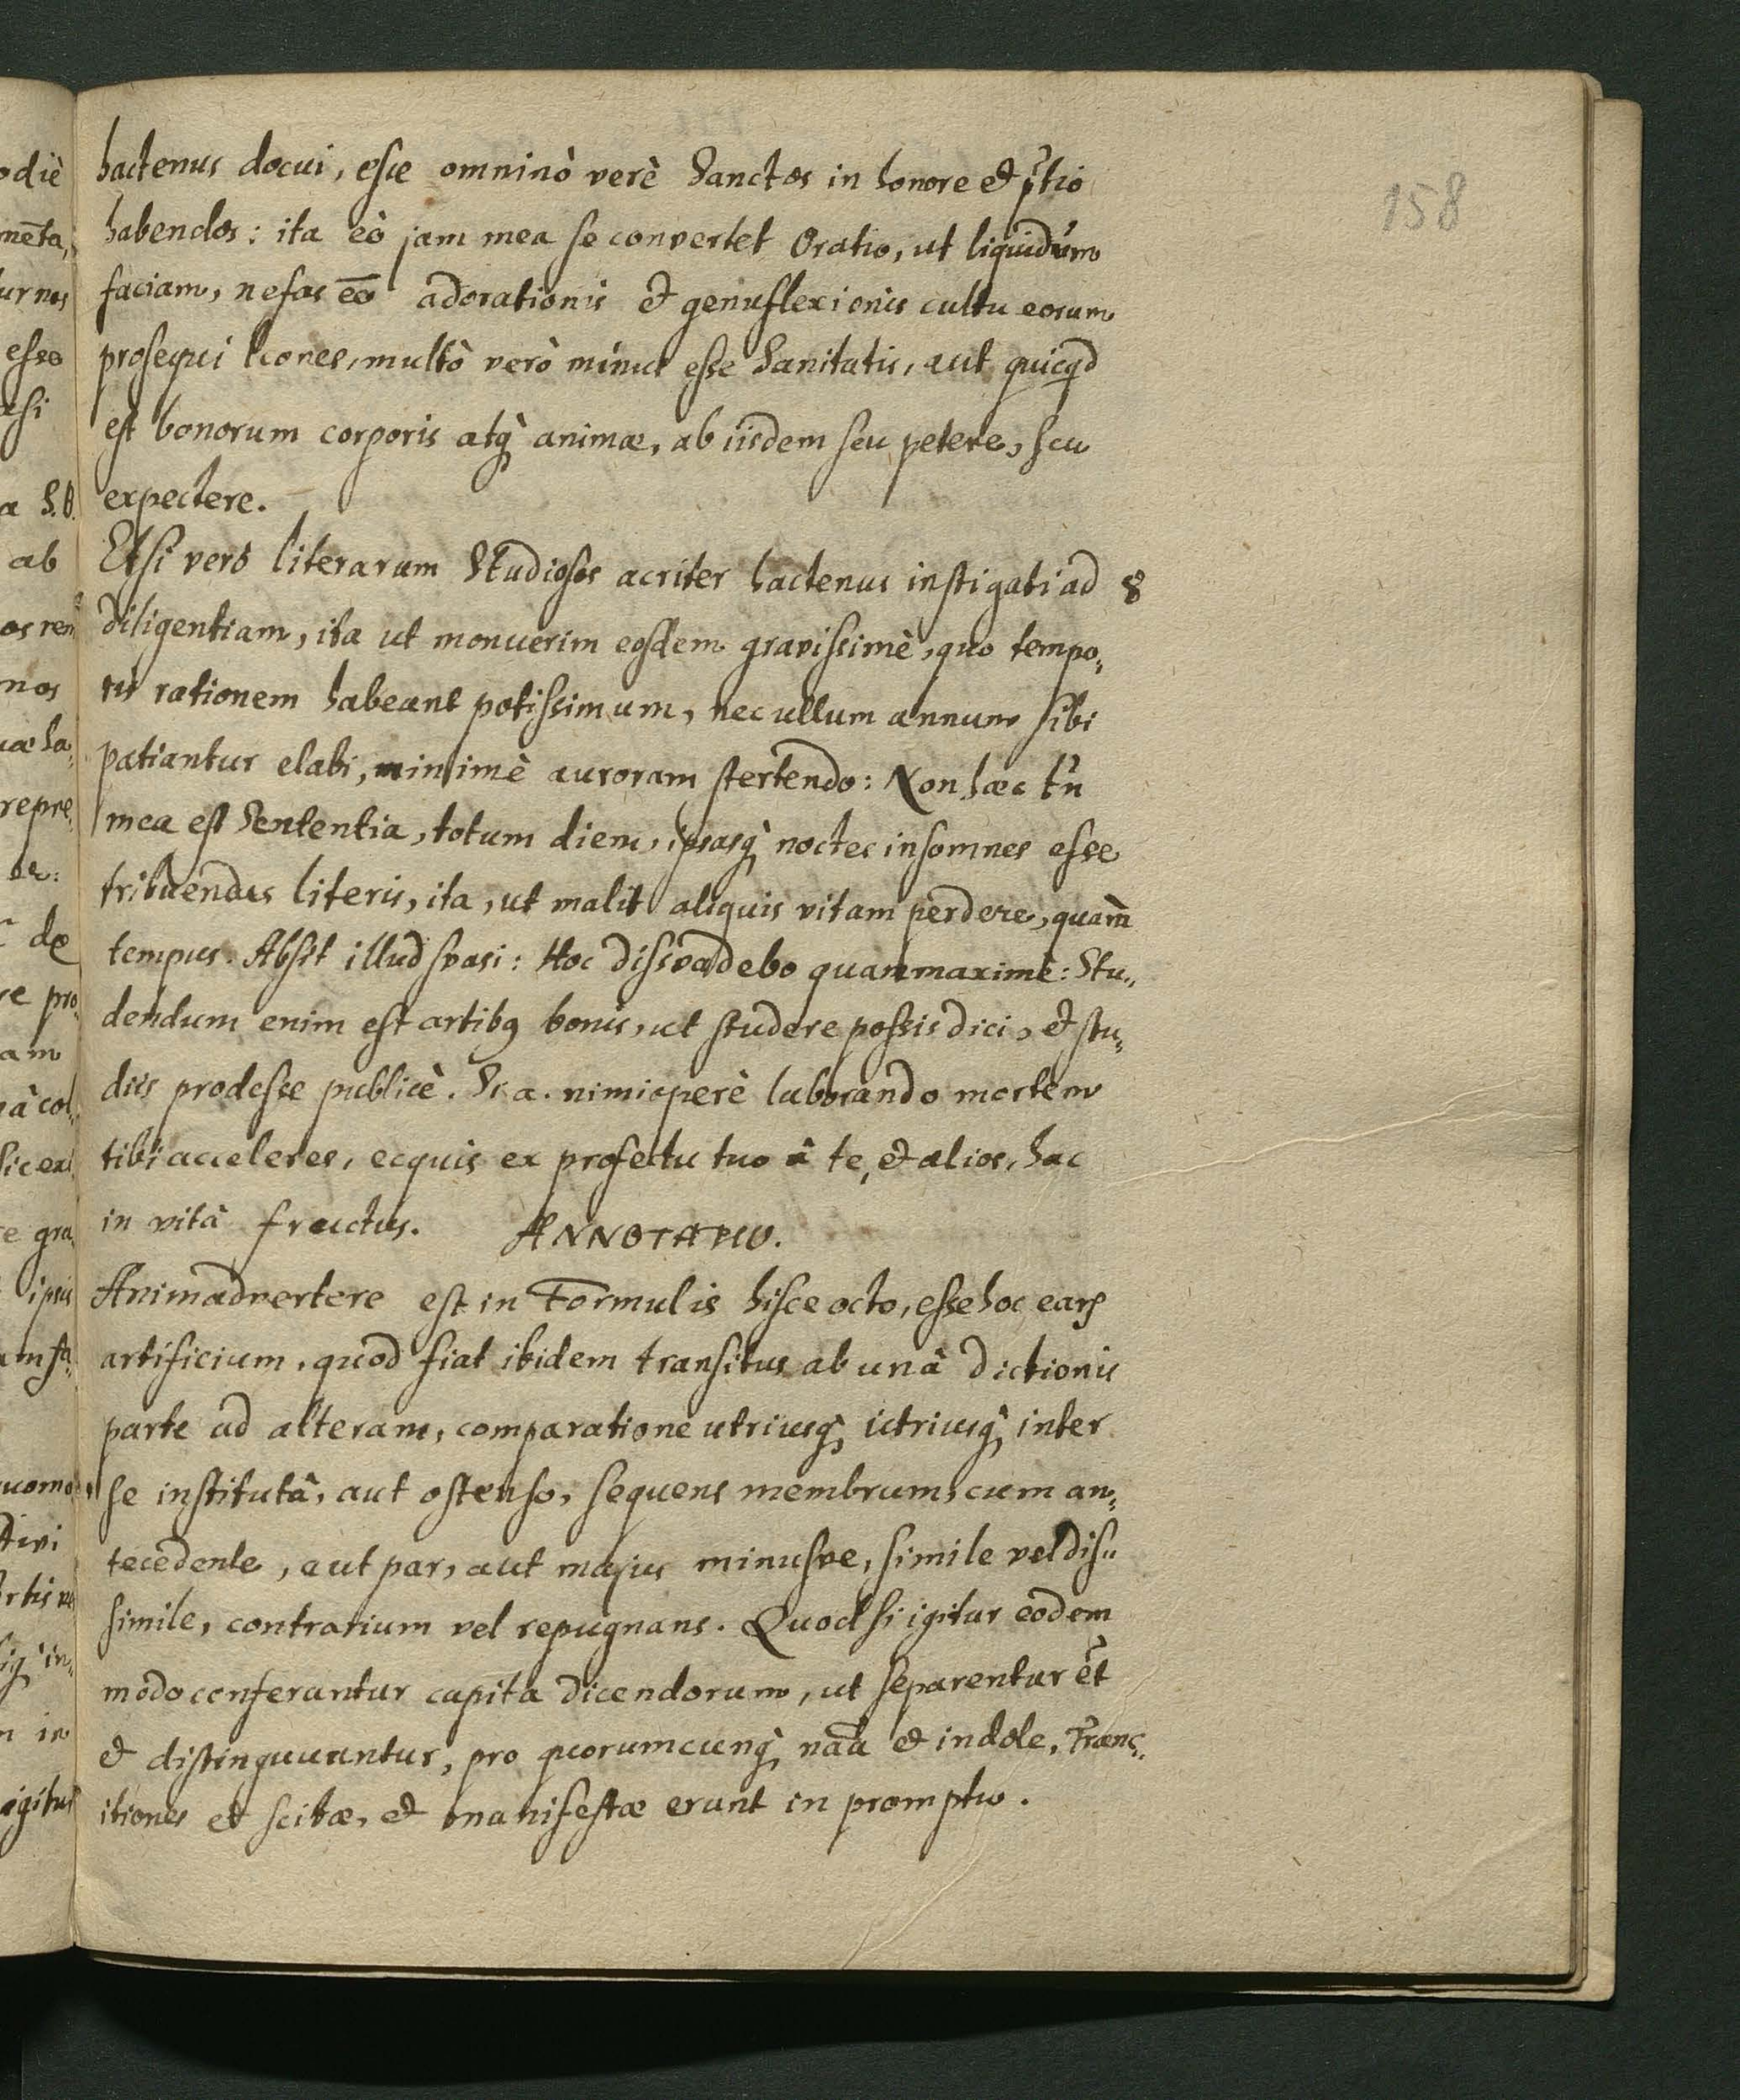 158
hactenus docui, esse omninò verè Sanctos in honore et p̃tio
habendos: ita eò jam mea se convertet Oratio, ut liquidùm
faciam, nefas eē adorationis et genuflexionis cultu eorum
prosequi Icones, multò verò minus esse Sanitatis, aut quicqd
est bonorum corporis atq̀ animæ, ab iisdem seu petere, seu
expectere.
Etsi verò literarum Studiosos acriter hactenus instigati ad 8
diligentiam, ita ut monuerim eosdem gravissimè, quo tempo„
ris rationem habeant potissimum, nec ullum annum sibi
patiantur elabi, minimè auroram stertendo: Non hæc tñ
mea est Sententia, totum diem, ipsasq̀ noctes insomnes esse
tribuendas literis, ita, ut malit aliquis vitam perdere, quam̀
tempus. Absit illud svasi: Hoc dissvadebo quammaximè: Stu„
dendum enim est artibq bonis, ut studere possis dici, et stu„
diis prodesse publicè. Si a. nimioperè laborando mortem
tibi acceleres, ecquis ex profectu tuo â te, et alios, hac
in vitâ fructus. ANNOTATIO.
Animadvertere est in Formulis hisce octo, esse hoc earꝝ
artificium, quod fiat ibidem transitus ab unâ dictionis
parte ad alteram, comparatione utriusq̀ utriusq̀ inter
se institutâ, aut ostenso, sequens membrum, cum an„
tecedente, aut par, aut majus minusve, simile vel dis„
simile, contrarium vel repugnans. Quod si igitur eodem
modo conferantur capita dicendorum, ut separentur et̃
et distinguuntur, pro quorumcunq̀ nãa et indole, Trans„
itiones et scitæ, et manifestæ erunt in promptu.